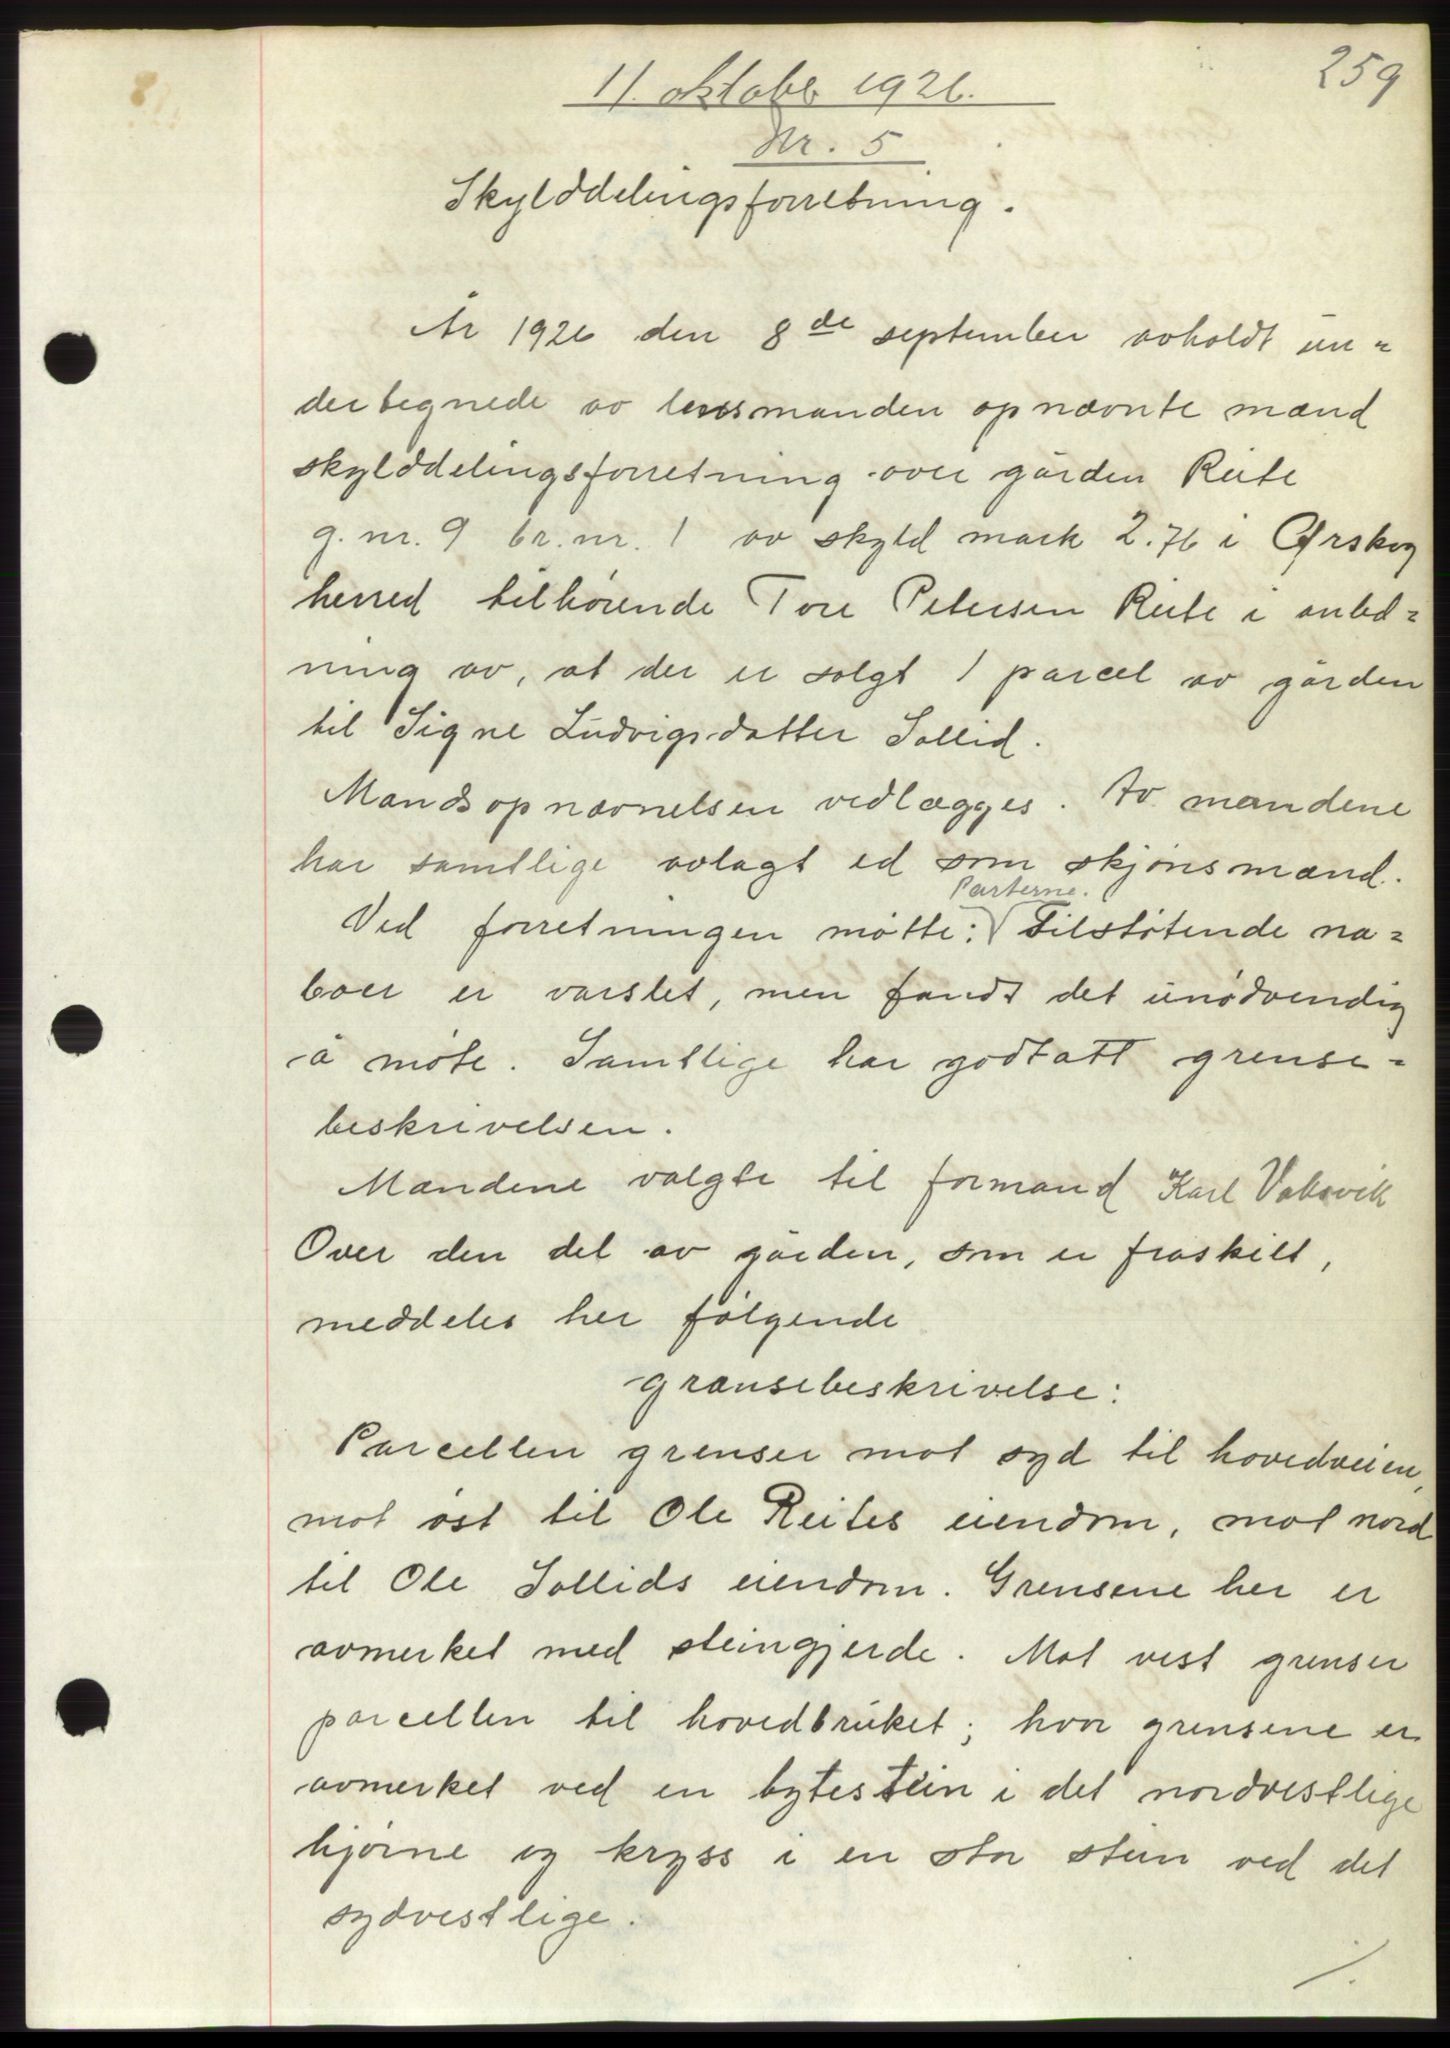 259
11. oktober 1926.
Nr. 5
Skylddelingsforretning.
År 1926 den 8de september avholdt un-
dertegnede av lensmanden opnævnte mænd
skylddelingsforretning over gården Reite
g. nr. 9 br. nr. 1 av skyld mark 2.76 i Ørskog
herred tilhørende Tore Petersen Reite i anled-
ning av, at der er solgt 1 parcel av gården
til Signe Ludvigsdatter Sollid.
Mandsopnævnelsen vedlægges. Av mændene
har samtlige avlagt ed som skjønsmænd.
Parterne.
Ved forretningen møtte: Tilstøtende na-
boer er varslet, men fandt det unødvendig
å møte. Samtlige har godtatt grense-
beskrivelsen.
Mændene valgte til formand Karl Vaksvik
Over den del av gården, som er fraskilt,
meddeles her følgende
grænsebeskrivelse:
Parcellen grenser mot syd til hovedveien,
mot øst til Ole Reites eiendom, mot nord
til Ole Sollids eiendom. Grensene her er
avmerket med steingjerde. Mot vest grenser
parcellen til hovedbruket; hvor grensene er
avmerket ved en bytestein i det nordvestlige
hjørne og kryss i en stor stein ved det
sydvestlige.
./.